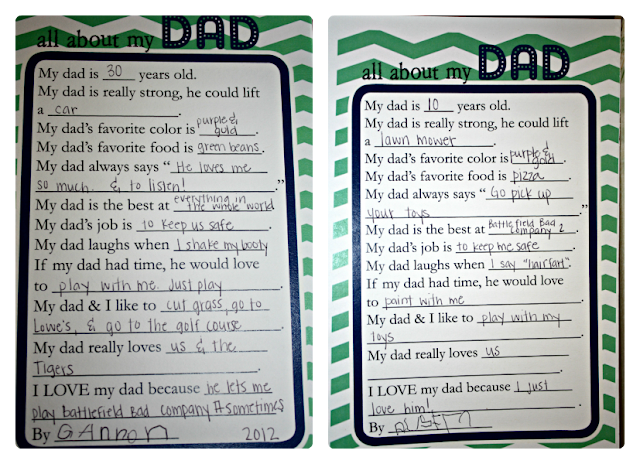 all about my DAD
My dad is 30 years old.
My dad is really strong, he could lift
a car.
My dad's favorite color is purple & gold.
My dad's favorite food is green beans.
My dad always says "He loves me
so much. & to listen!"
My dad is the best at everything in the whole world
My dad's job is to keep us safe.
My dad laughs when I shake my booty
If my dad had time, he would love
to play with me. Just play.
My dad & I like to cut grass, go to
Lowe's, & go to the golf course.
My dad really loves us & the
Tigers.
I LOVE my dad because he lets me
play Battlefield Bad Company #2 sometimes
By GANNON 2012
all about my DAD
My dad is 10 years old.
My dad is really strong, he could lift
a lawn mower.
My dad's favorite color is purple & gold.
My dad's favorite food is pizza.
My dad always says "Go pick up
your toys."
My dad is the best at Battlefield Bad Company 2.
My dad's job is to keep me safe.
My dad laughs when I say "hairfart".
If my dad had time, he would love
to paint with me.
My dad & I like to play with my
toys.
My dad really loves us
I LOVE my dad because I just
love him!.
By